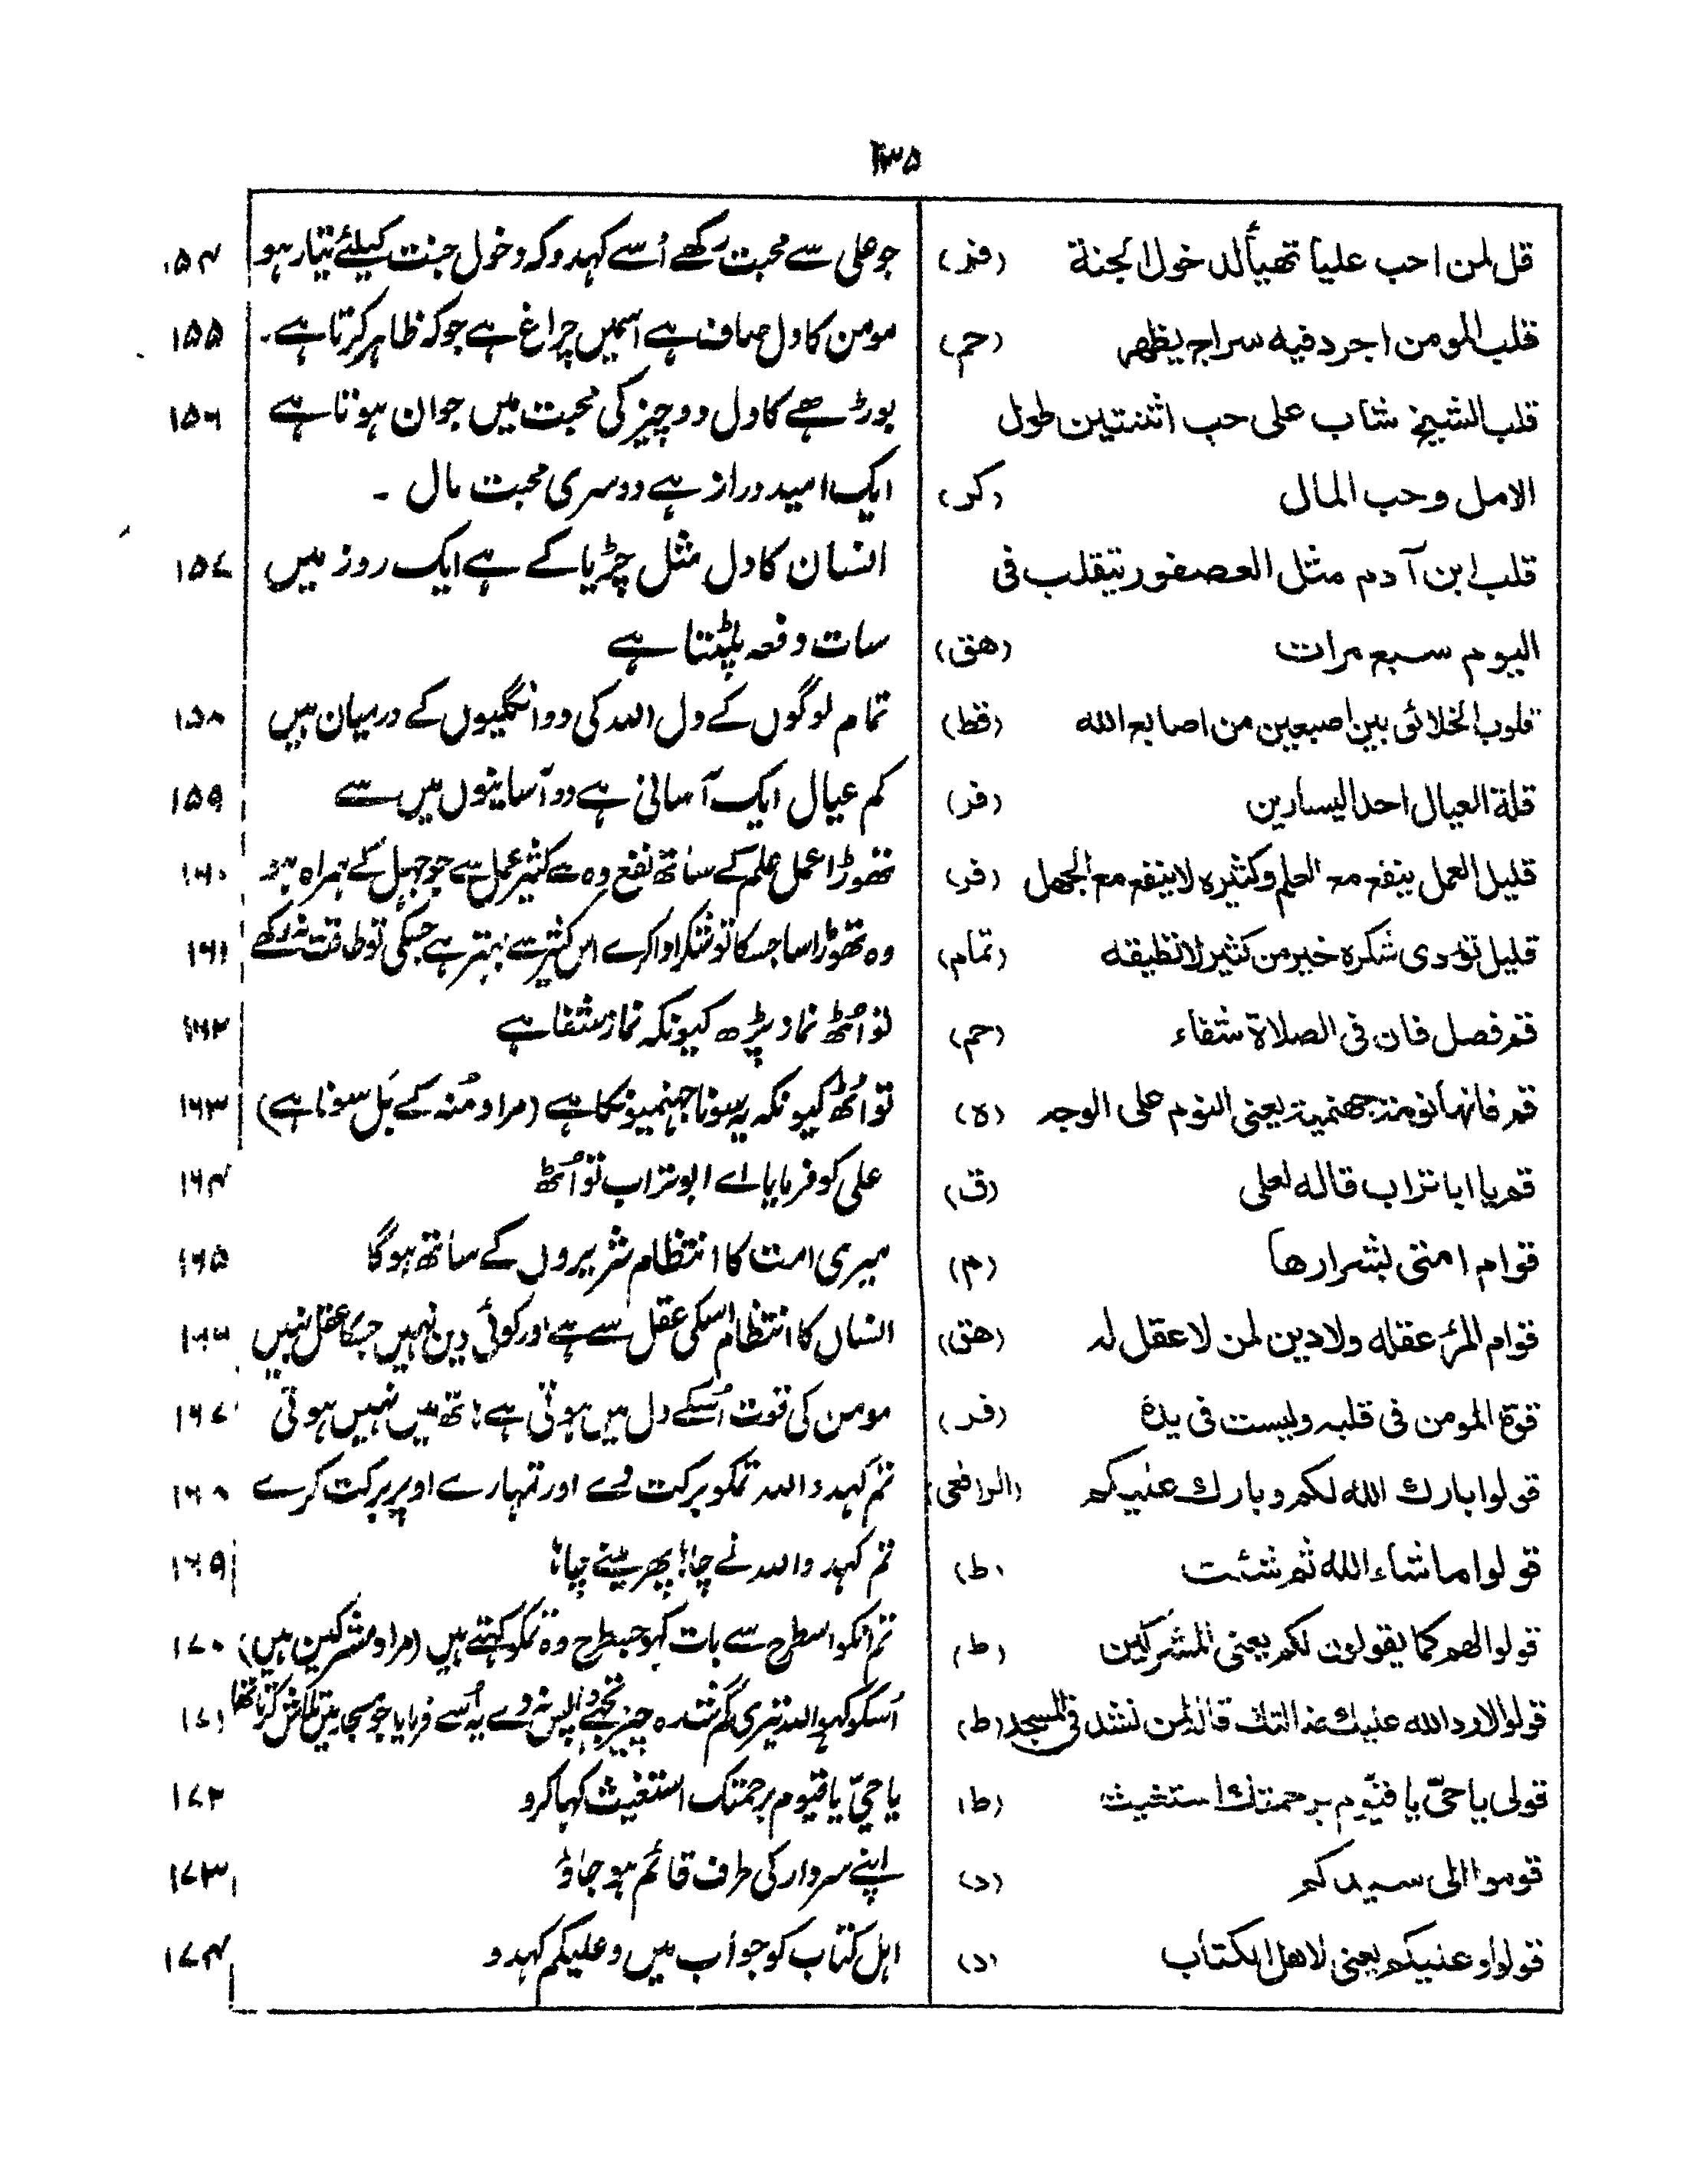 ۱۳۵
قل لمن احب علیا تهیأ لدخول الجنة (فر) جو علی سے محبت رکھے اُسے کہدو کہ دخول جنت کیلئے تیار ہو ۱۵۴
قلب المومن اجرد فیه سراج یظهر (حم) مومن کا دل صاف ہے اسمیں چراغ ہے جو کہ ظاہر کرتا ہے۔ ۱۵۵
قلب الشیخ شاب علی حب اثنتین طول بوڑھے کا دل دو چیز کی محبت میں جوان ہوتا ہے ۱۵۶
الامل وحب المال (کر) ایک امید دراز ہے دوسری محبت مال ۔
قلب ابن آدم مثل العصفور یتقلب فی انسان کا دل مثل چڑیا کے ہے ایک روز میں ۱۵۷
الیوم سبع مرات (هق) سات دفعہ پلٹتا ہے
قلوب الخلائق بین اصبعین من اصابع الله (قط) تمام لوگوں کے دل اللہ کی دو انگلیوں کے درمیان ہیں ۱۵۸
قلة العیال احد الیسارین (فر) کم عیال ایک آسانی ہے دو آسانیوں میں سے ۱۵۹
قلیل العمل ینفع مع العلم وکثیره لا ینفع مع الجهل (فر) تھوڑا عمل علم کے ساتھ نفع دہ ہے کثیر عمل سے جو جہل کے ہمراہ ہو ۱۶۰
قلیل تؤدی شکره خیر من کثیر لا تطیقه (تمام) وہ تھوڑا سا جسکا تو شکر ادا کرے اس کثیر سے بہتر ہے جسکی تو طاقت نہ رکھے ۱۶۱
قم فصل فان فی الصلاة شفاء (حم) تو اُٹھ نماز پڑھ کیونکہ نماز شفا ہے ۱۶۲
قم فانها نومة جهنمیة یعنی النوم علی الوجه (ه) تو اُٹھ کیونکہ یہ سونا جہنمیونکا ہے (مراد مُنہ کے بَل سونا ہے) ۱۶۳
قم یا ابا تراب قاله لعلی (ق) علی کو فرمایا اے ابو تراب تو اُٹھ ۱۶۴
قوام امتی بشرارها (م) میری امت کا انتظام شریروں کے ساتھ ہوگا ۱۶۵
قوام المرء عقله ولا دین لمن لا عقل له (هق) انسان کا انتظام اسکی عقل سے ہے اور کوئی دین نہیں جسکا عقل نہیں ۱۶۶
قوة المومن فی قلبه ولیست فی یدہ (فر) مومن کی قوت اُسکے دل میں ہوتی ہے ہاتھ میں نہیں ہوتی ۱۶۷
قولوا بارك الله لکم وبارك علیکم (الرافعی) تم کہدو اللہ تمکو برکت دے اور تمہارے اوپر برکت کرے ۱۶۸
قولوا ما شاء الله ثم شئت (ط) تم کہدو اللہ نے چاہا پھر مینے چاہا ۱۶۹
قولوا لهم کما یقولون لکم یعنی المشرکین (ط) تم انکو اسطرح سے بات کہو جسطرح وہ تمکو کہتے ہیں (مراد مشرکین ہیں) ۱۷۰
قولوا لا رد الله علیك ضالتك قاله لمن نشد فی المسجد (ط) اُسکو کہو اللہ تیری گم شدہ چیز تجھے واپس نہ دے یہ اُسے فرمایا جو مسجد میں تلاش کرتا تھا ۱۷۱
قولی یا حیّ یا قیّوم برحمتك استغیث (ط) یا حیّ یا قیوم برحمتک استغیث کہا کرو ۱۷۲
قوموا الی سیدکم (د) اپنے سردار کی طرف قائم ہو جاؤ ۱۷۳
قولوا وعلیکم یعنی لاهل الکتاب (د) اہل کتاب کو جواب میں وعلیکم کہدو ۱۷۴